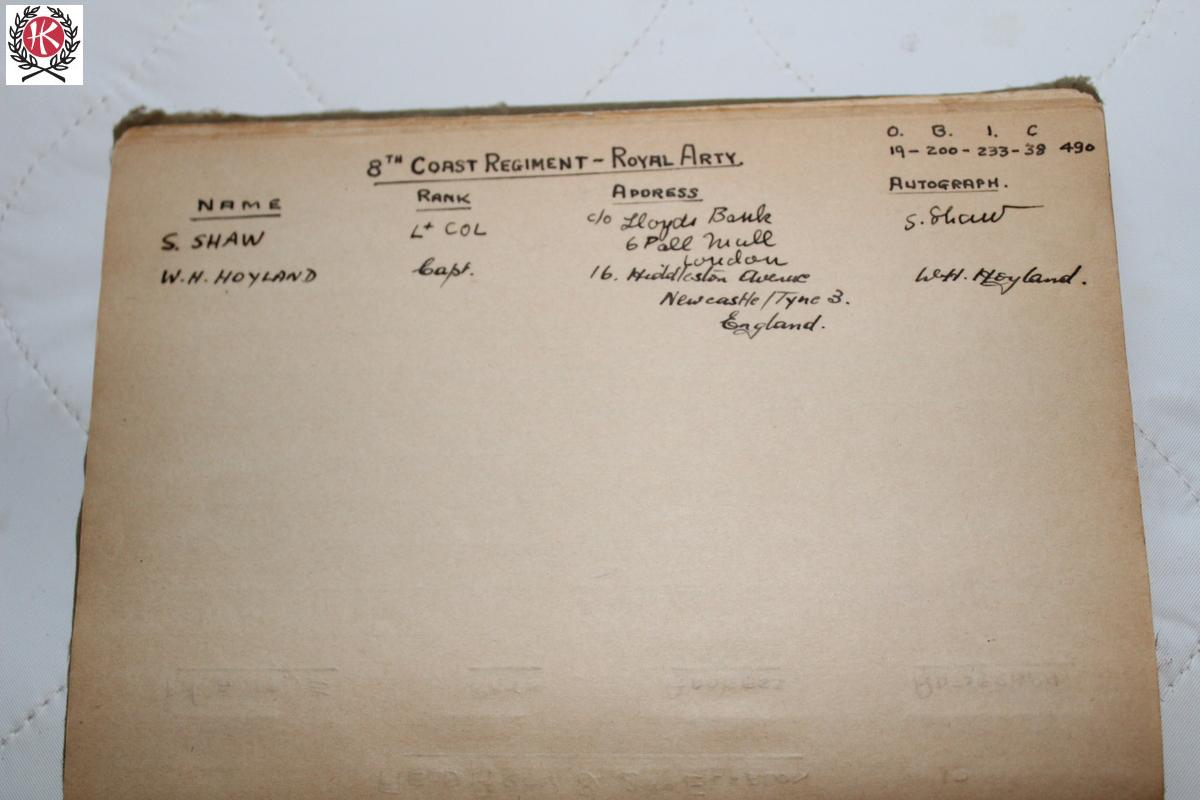 HK
O. B. I. C
8TH COAST REGIMENT - ROYAL ARTY.
19 - 200 - 233 - 38 490
NAME RANK ADDRESS AUTOGRAPH.
S. SHAW Lt COL c/o Lloyds Bank S. Shaw
6 Pall Mall
London
W.H. HOYLAND Capt. 16. Huddleston Avenue W.H. Hoyland.
Newcastle/Tyne 3.
England.
ADDRESS
AUTOGRAPH